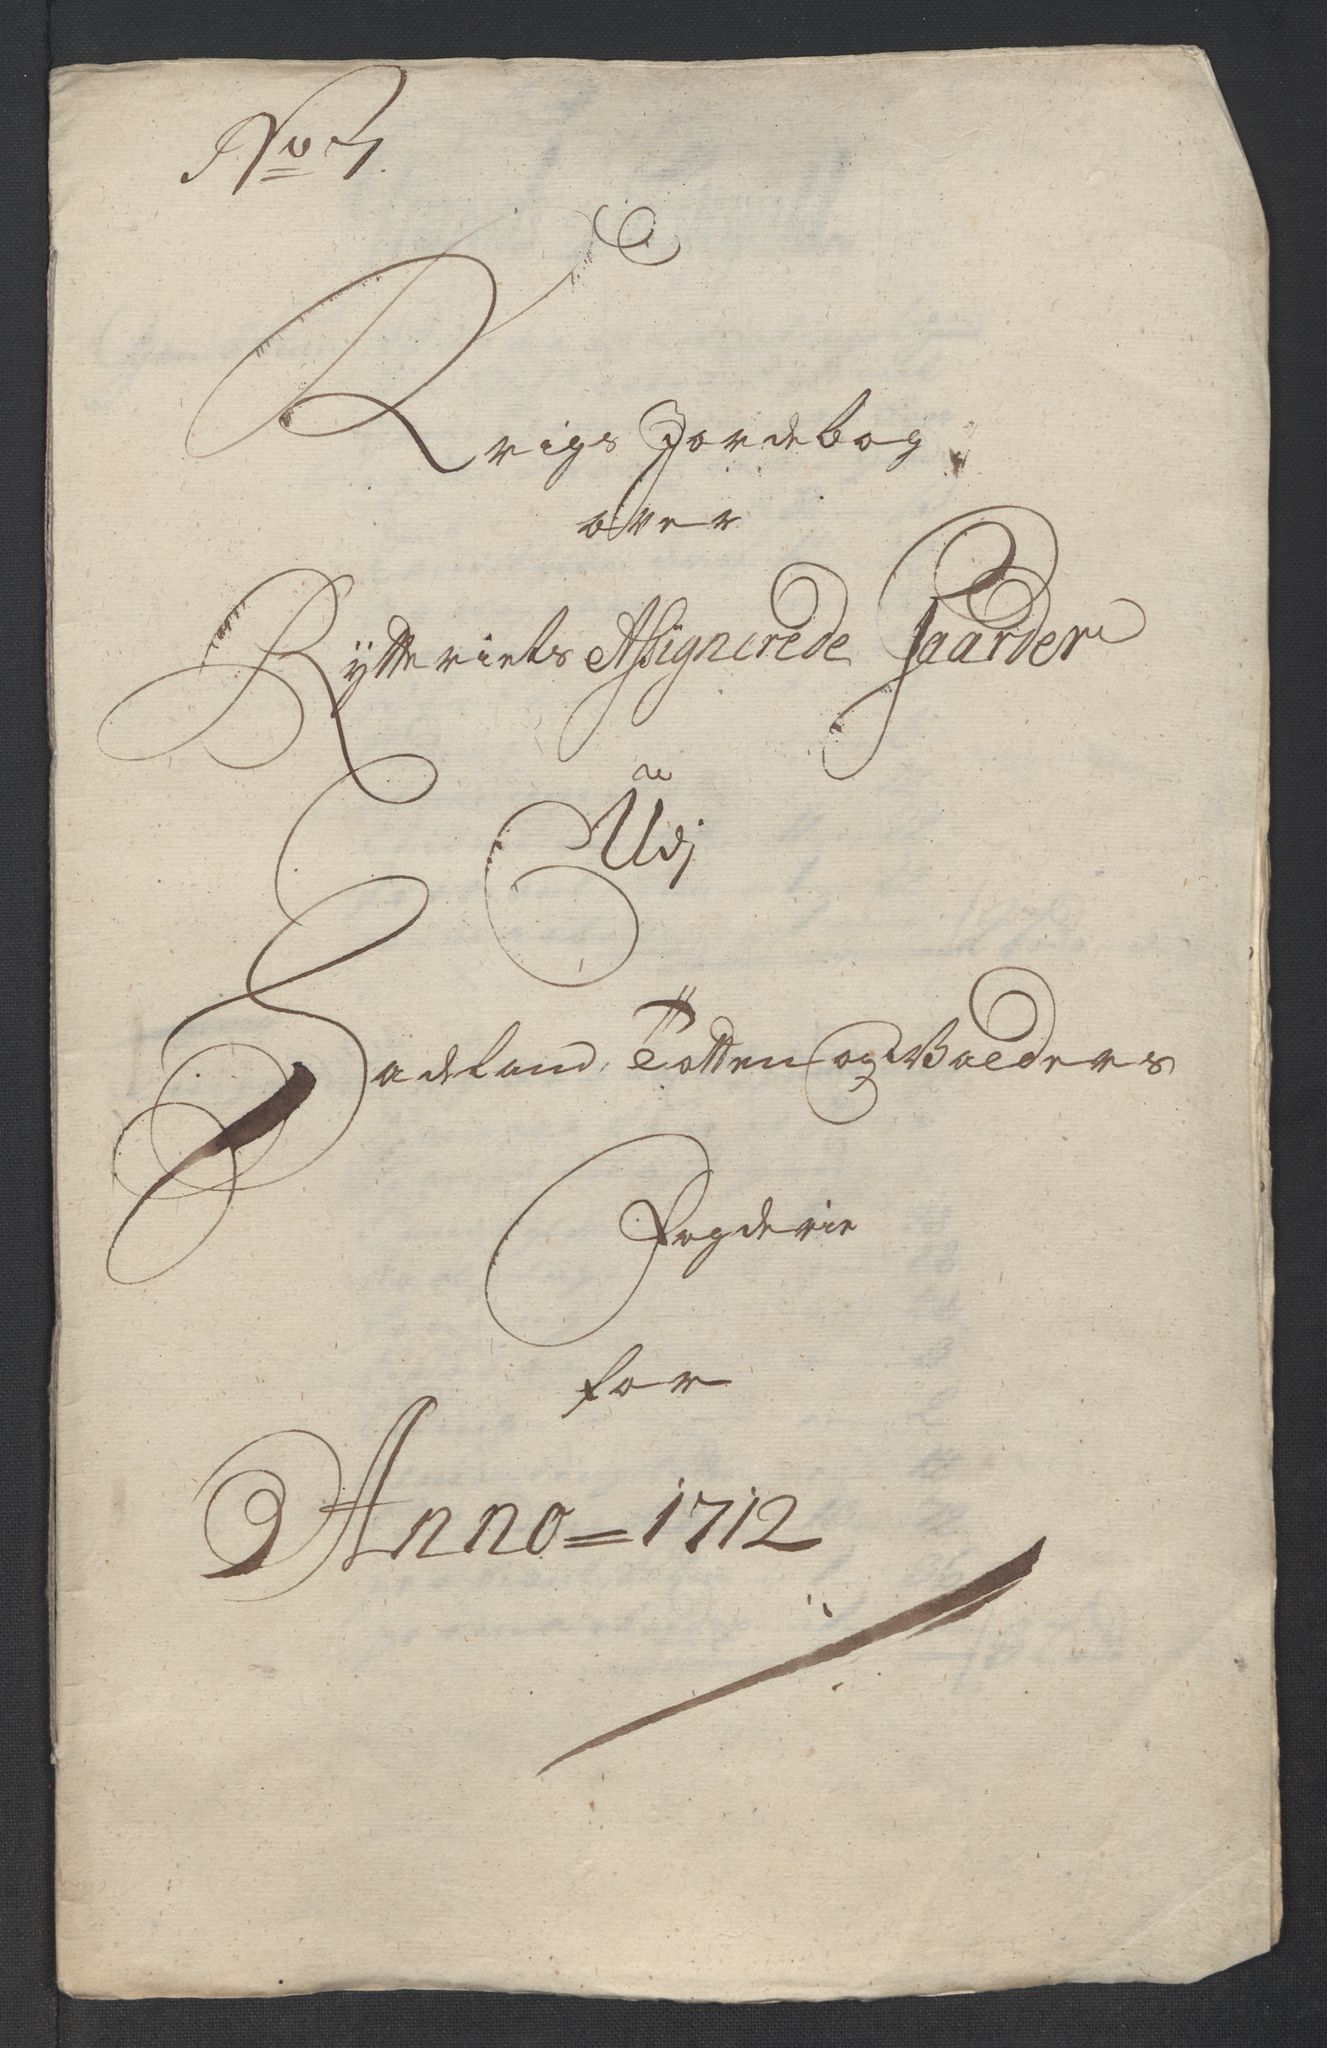 No 7.
Krigs Jordebog
over
Rÿtteriets Assignerede Gaarder
Udj
Hadeland, Totten og Valders
Fogderie
for
Anno = 1712